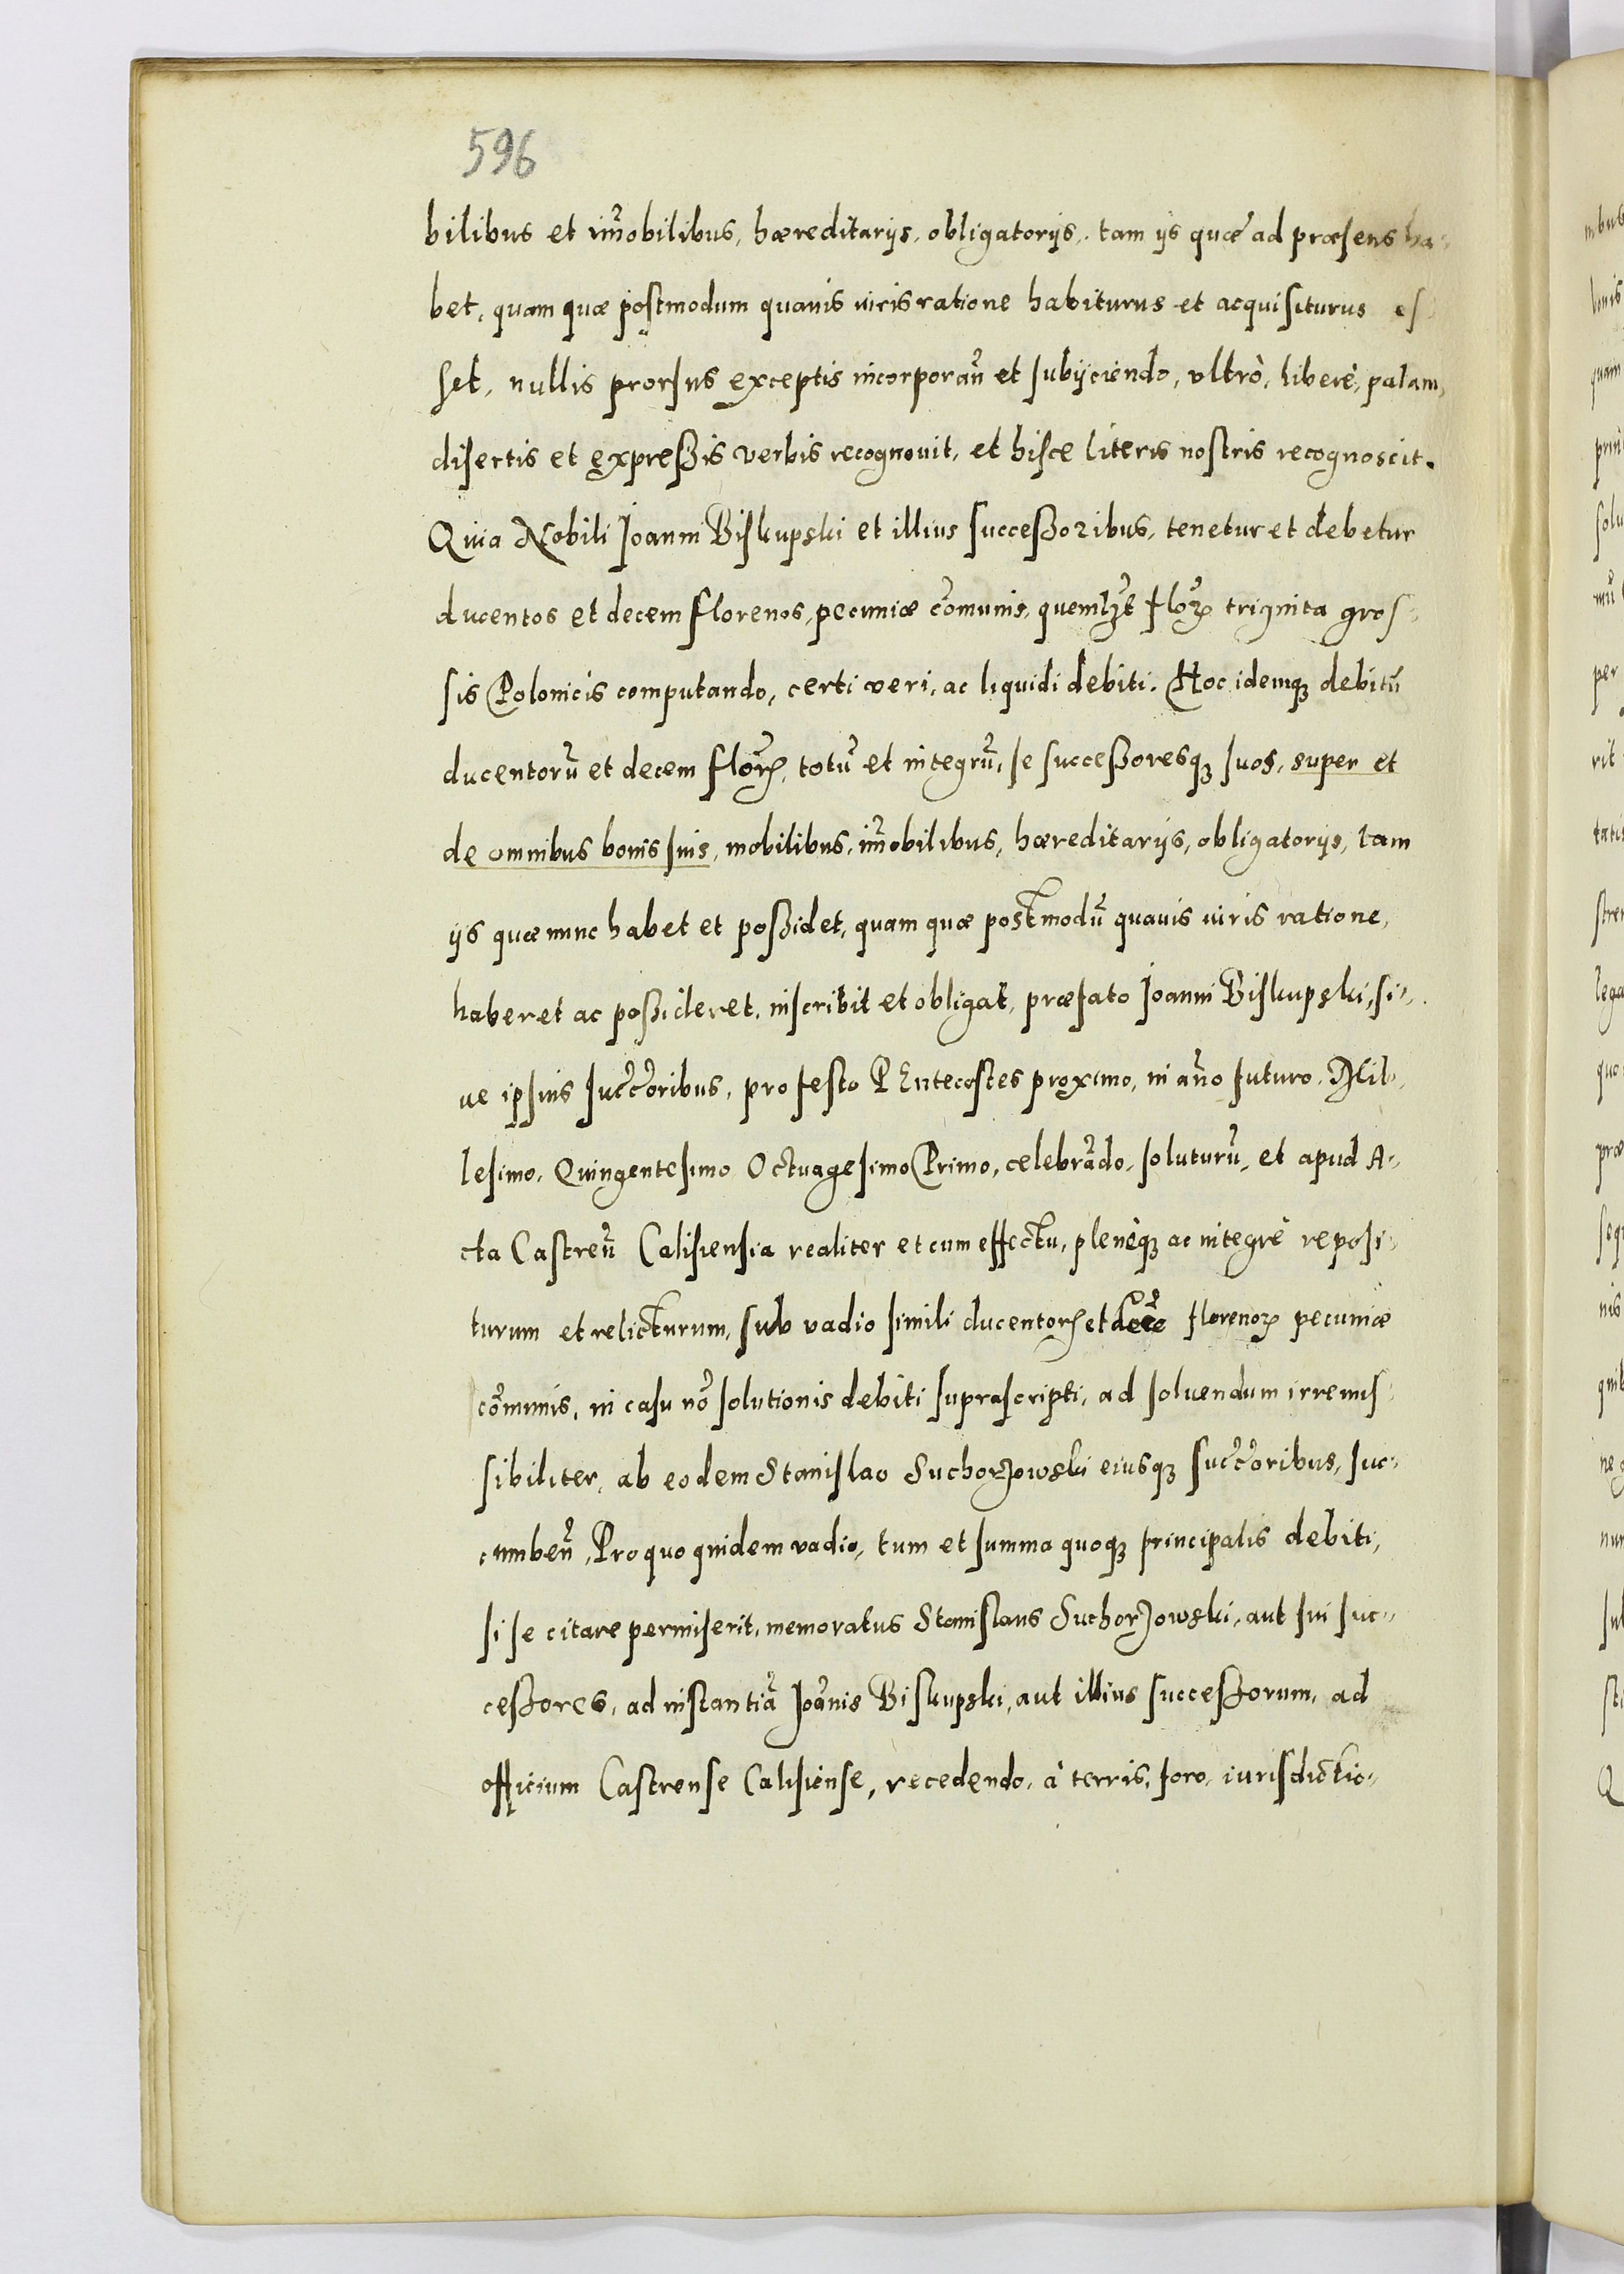 596
bilibus et im̃obilibus, hæreditarijs, obligatorijs, tam ijs quæ ad præsens ha-
bet, quam quæ postmodum quauis iuris ratione habiturus et acquisiturus es
set, nullis prorsus exceptis incorporañ et subijciendo, vltrò, liberè, palam,
disertis et expreßis verbis recognouit, et hisce literis nostris recognoscit.
Quia Nobili Joanni Biskupski et illius succeßoribus, tenetur et debetur
ducentos et decem florenos, pecuniæ com̃unis, quemlꝫt florꝝ triginta gros-
sis Polonicis computando, certi veri, ac liquidi debiti. Hoc idemqꝫ debitũ
ducentorũ et decem florꝝ, totũ et integrũ, se succeßoresqꝫ suos, super et
de omnibus bonis suis, mobilibus, im̃obilibus, hæreditarijs, obligatorijs, tam
ijs quæ nunc habet et poßidet, quam quæ postmodũ quauis iuris ratione,
haberet ac poßideret, inscribit et obligat, præfato Joanni Biskupski, si-
ue ipsius succ̃oribus, pro festo PEntecostes proximo, in año futuro, Mil-
lesimo, Quingentesimo Octuagesimo Primo, celebrãdo, soluturũ, et apud A-
cta Castreñ Calisiensia realiter et cum effectu, plenèqꝫ ac integrè reposi-
turum et relicturum, sub vadio simili ducentorꝝ et decẽ florenorꝝ pecuniæ
com̃unis, in casu nõ solutionis debiti suprascripti, ad soluendum irremis
sibiliter, ab eodem Stanislao Suchorzowski eiusqꝫ succ̃oribus, suc-
cumbeñ, Pro quo quidem vadio, tum et summa quoqꝫ principalis debiti,
si se citare permiserit, memoratus Stanislaus Suchorzowski, aut sui suc-
ceßores, ad instantiã Joãnis Biskupski, aut illius succeßorum, ad
officium Castrense Calisiense, recedendo, à terris, foro, iurisdictio-